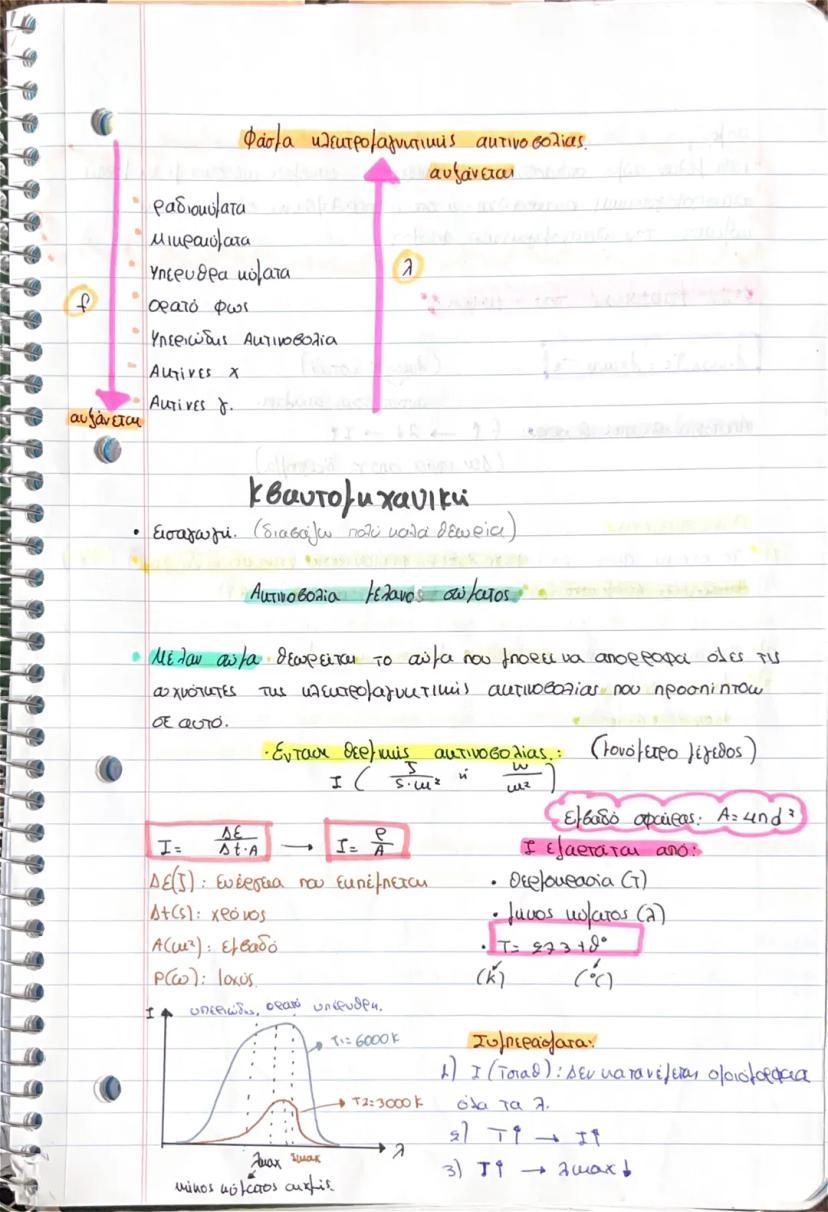 Φάσμα ηλεκτρομαγνητικής ακτινοβολίας
αυξάνεται
ραδιοκύματα
Μικροκύματα
Υπέρυθρα κύματα
λ
f
Ορατό φως
Υπεριώδης Ακτινοβολία
Ακτίνες χ
Ακτίνες γ.
αυξάνεται
Κβαντομηχανική
• Εισαγωγή. (διαβάζω πολύ καλά θεωρία)
Ακτινοβολία μέλανος σώματος
• Μέλαν σώμα θεωρείται το σώμα που μπορεί να απορροφά όλες τις
συχνότητες της ηλεκτρομαγνητικής ακτινοβολίας που προσπίπτουν
σε αυτό.
• Ένταση θερμικής ακτινοβολίας: (μονόμετρο μέγεθος)
I ( J/s·m² ή W/m² )
Εμβαδό σφαίρας: A=4πd²
I = ΔΕ/Δt·A → I = P/A
I εξαρτάται από:
ΔΕ(J): Ενέργεια που εκπέμπεται
• Θερμοκρασία (T)
Δt(s): χρόνος
• μήκος κύματος (λ)
A(m²): εμβαδό
• T= 273+θ°
P(W): Ισχύς
(K) (°C)
I
υπεριώδης, ορατό υπέρυθρη.
T1=6000K
Συμπεράσματα:
1) I (Tσταθ): Δεν κατανέμεται ομοιόμορφα
T2=3000K
όλα τα λ.
2) T↑ → I↑
λ
λmax λmax
3) T↑ → λmax↓
μήκος κύματος αιχμής.